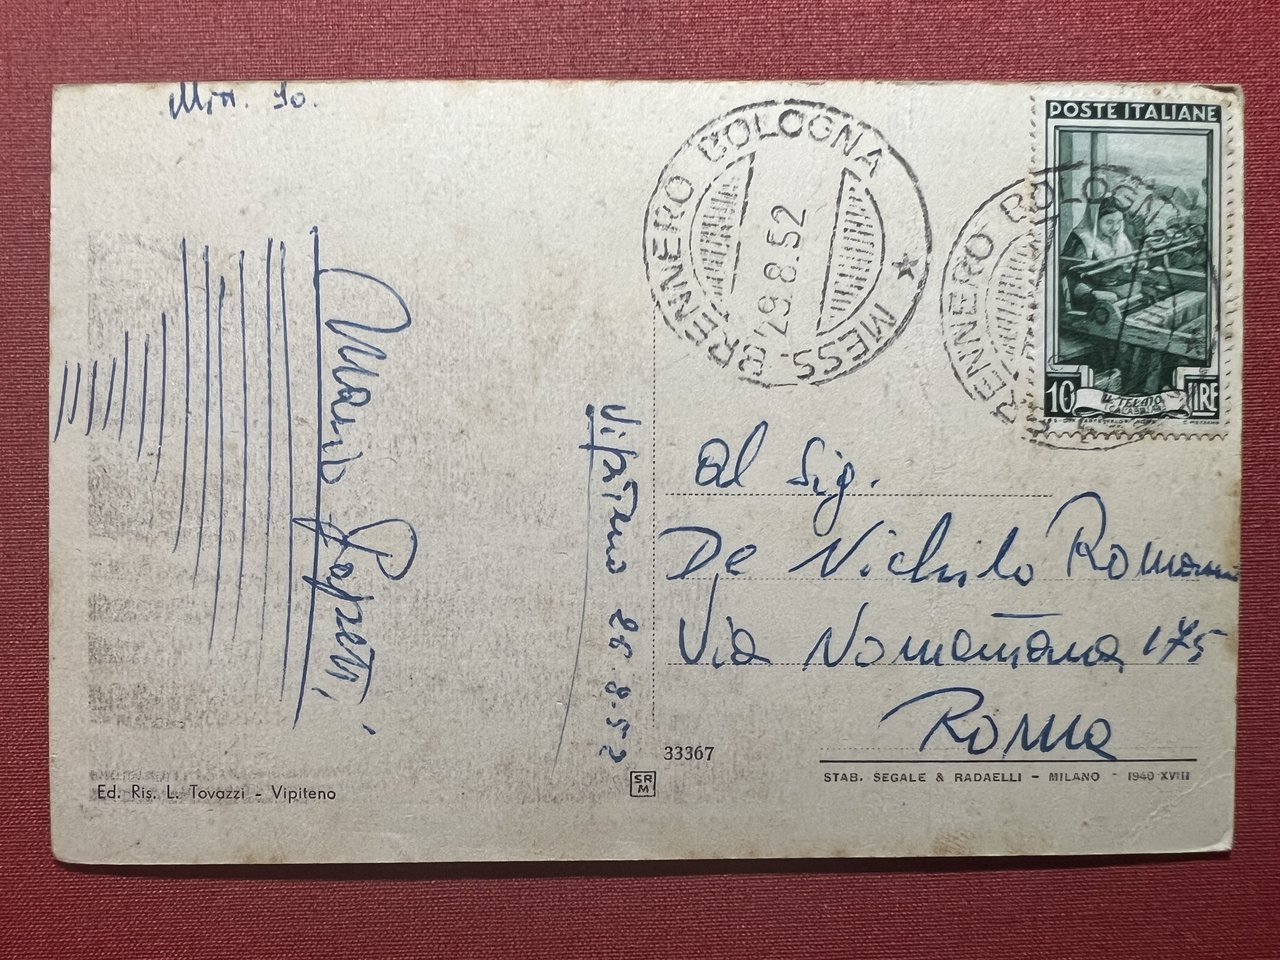 POSTE ITALIANE
10 LIRE
BRENNERO BOLOGNA
MESS. BRENNERO BOLOGNA ★
29.8.52
Vipiteno 26.8.52
al Sig.
De Nichilo Romano
Via Nomentana 175
Roma
33367
SRM
STAB. SEGALE & RADAELLI - MILANO - 1940-XVIII
Ed. Ris. L. Tovazzi - Vipiteno